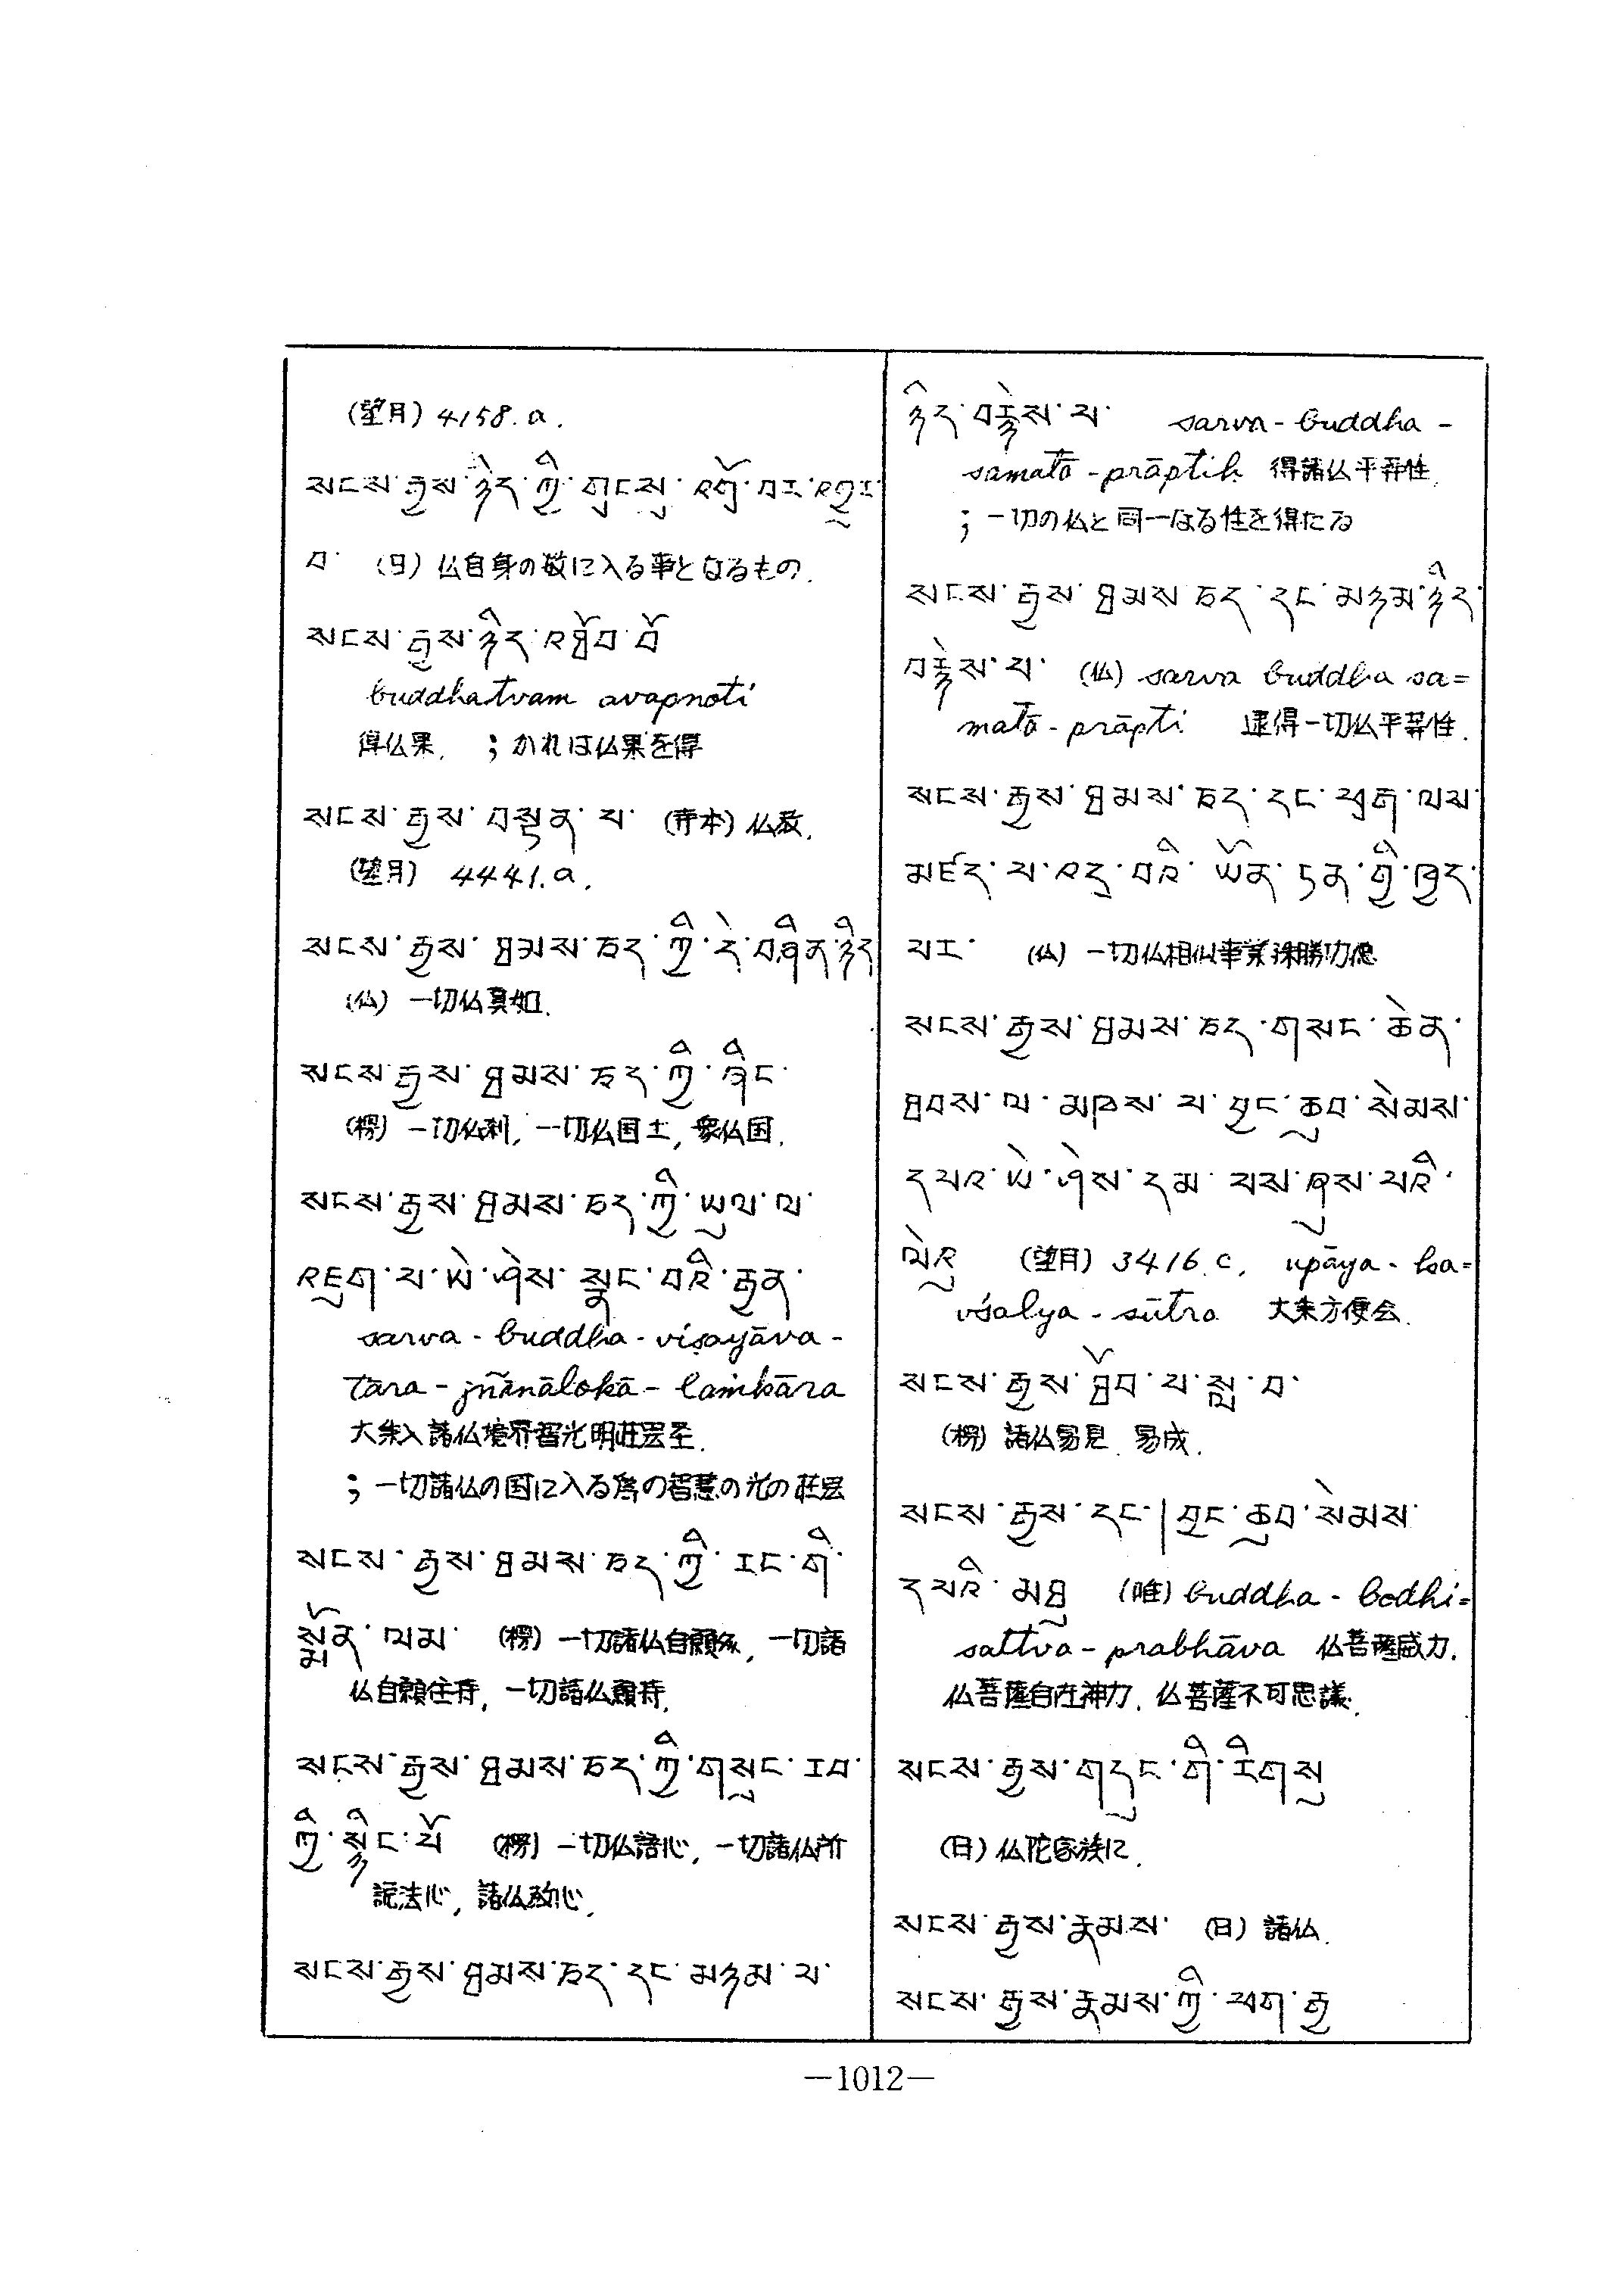 (望月) 4158.a.
སངས་རྒྱས་ཉིད་ཀྱི་གྲངས་སུ་འགྲོ་བར་འགྱུར་
བ་ (日) 仏自身の数に入る事となるもの.
སངས་རྒྱས་ཉིད་འཐོབ་བོ
buddhatvam avapnoti
得仏果. ; かれは仏果を得
སངས་རྒྱས་བསྟན་པ་ (寺本) 仏教.
(望月) 4441.a.
སངས་རྒྱས་ཐམས་ཅད་ཀྱི་དེ་བཞིན་ཉིད
(仏) 一切仏真如.
སངས་རྒྱས་ཐམས་ཅད་ཀྱི་ཞིང་
(楞) 一切仏刹, 一切仏国土, 衆仏国.
སངས་རྒྱས་ཐམས་ཅད་ཀྱི་ཡུལ་ལ་
འཇུག་པ་ཡེ་ཤེས་སྣང་བའི་རྒྱན་
sarva-buddha-viṣayāva-
tāra-jñānālokā-laṁkāra
大乗入諸仏境界智光明荘厳経.
; 一切諸仏の国に入る為の智慧の光の荘厳
སངས་རྒྱས་ཐམས་ཅད་ཀྱི་རང་གི་
སྨོན་ལམ་ (楞) 一切諸仏自願縁, 一切諸
仏自願住持, 一切諸仏願持.
སངས་རྒྱས་ཐམས་ཅད་ཀྱི་གསུང་རབ་
ཀྱི་སྙིང་པོ (楞) 一切仏語心, 一切諸仏所
説法心, 諸仏教心.
སངས་རྒྱས་ཐམས་ཅད་དང་མཉམ་པ་
ཉིད་བརྙེས་པ་ sarva-buddha-
samatā-prāptiḥ 得諸仏平等性.
; 一切の仏と同一なる性を得たる
སངས་རྒྱས་ཐམས་ཅད་དང་མཉམ་ཉིད་
བརྙེས་པ་ (仏) sarva buddha sa=
matā-prāpti 逮得一切仏平等性.
སངས་རྒྱས་ཐམས་ཅད་དང་ཕྲག་ལས་
མཛད་པ་འདྲ་བའི་ཡོན་ཏན་གྱི་ཁྱད་
པར་ (仏) 一切仏相似事業殊勝功徳
སངས་རྒྱས་ཐམས་ཅད་གསང་ཆེན་
ཐབས་ལ་མཁས་པ་བྱང་ཆུབ་སེམས་
དཔའ་ཡེ་ཤེས་དམ་པས་ཞུས་པའི་
ལེའུ (望月) 3416.c. upāya-ka=
uśalya-sūtra 大乗方便会.
སངས་རྒྱས་ཐོབ་པ་སླ་བ་
(楞) 諸仏易見. 易成.
སངས་རྒྱས་དང་|བྱང་ཆུབ་སེམས་
དཔའི་མཐུ (唯) buddha-bodhi=
sattva-prabhāva 仏菩薩威力.
仏菩薩自在神力. 仏菩薩不可思議.
སངས་རྒྱས་གདུང་གི་རིགས་སུ
(日) 仏陀家族に.
སངས་རྒྱས་རྣམས་ (日) 諸仏.
སངས་རྒྱས་རྣམས་ཀྱི་ཕྱག་རྒྱ
—1012—